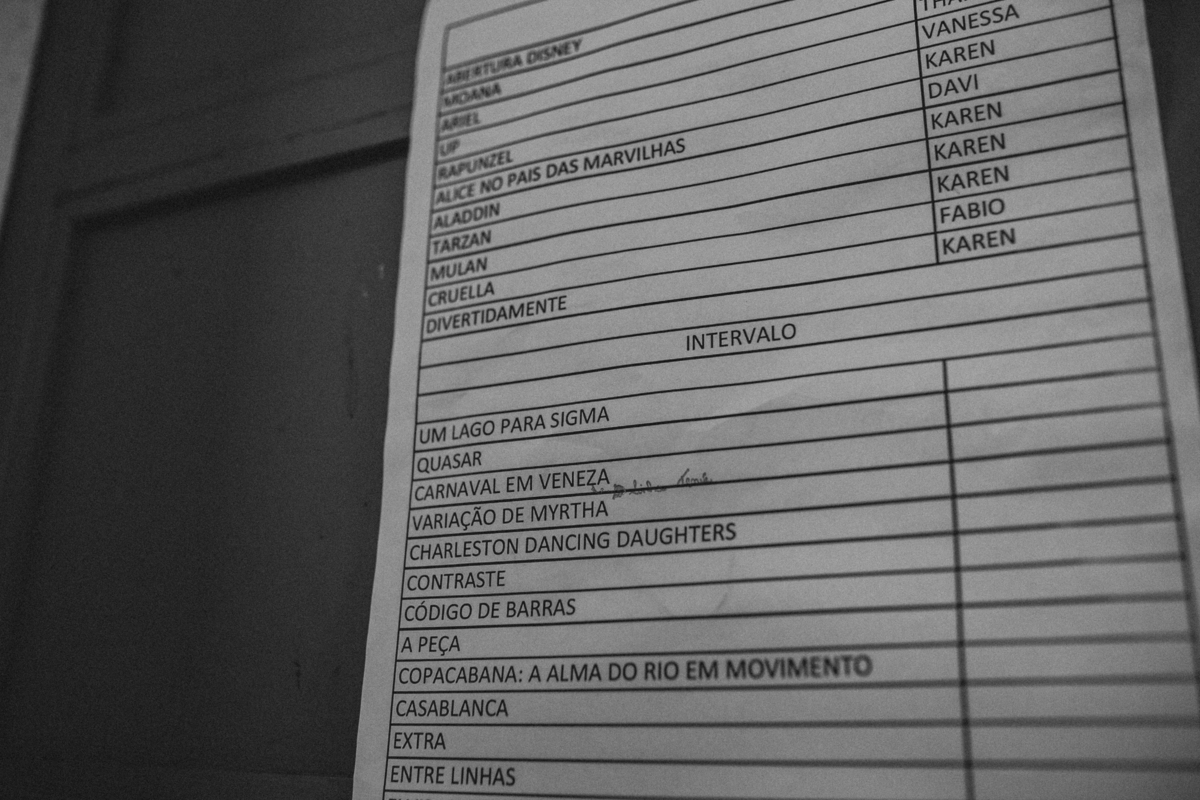 ABERTURA DISNEY
MOANA
ARIEL
UP VANESSA
RAPUNZEL KAREN
ALICE NO PAIS DAS MARVILHAS DAVI
ALADDIN KAREN
TARZAN KAREN
MULAN KAREN
CRUELLA FABIO
DIVERTIDAMENTE KAREN
INTERVALO
UM LAGO PARA SIGMA
QUASAR
CARNAVAL EM VENEZA
VARIAÇÃO DE MYRTHA
CHARLESTON DANCING DAUGHTERS
CONTRASTE
CÓDIGO DE BARRAS
A PEÇA
COPACABANA: A ALMA DO RIO EM MOVIMENTO
CASABLANCA
EXTRA
ENTRE LINHAS